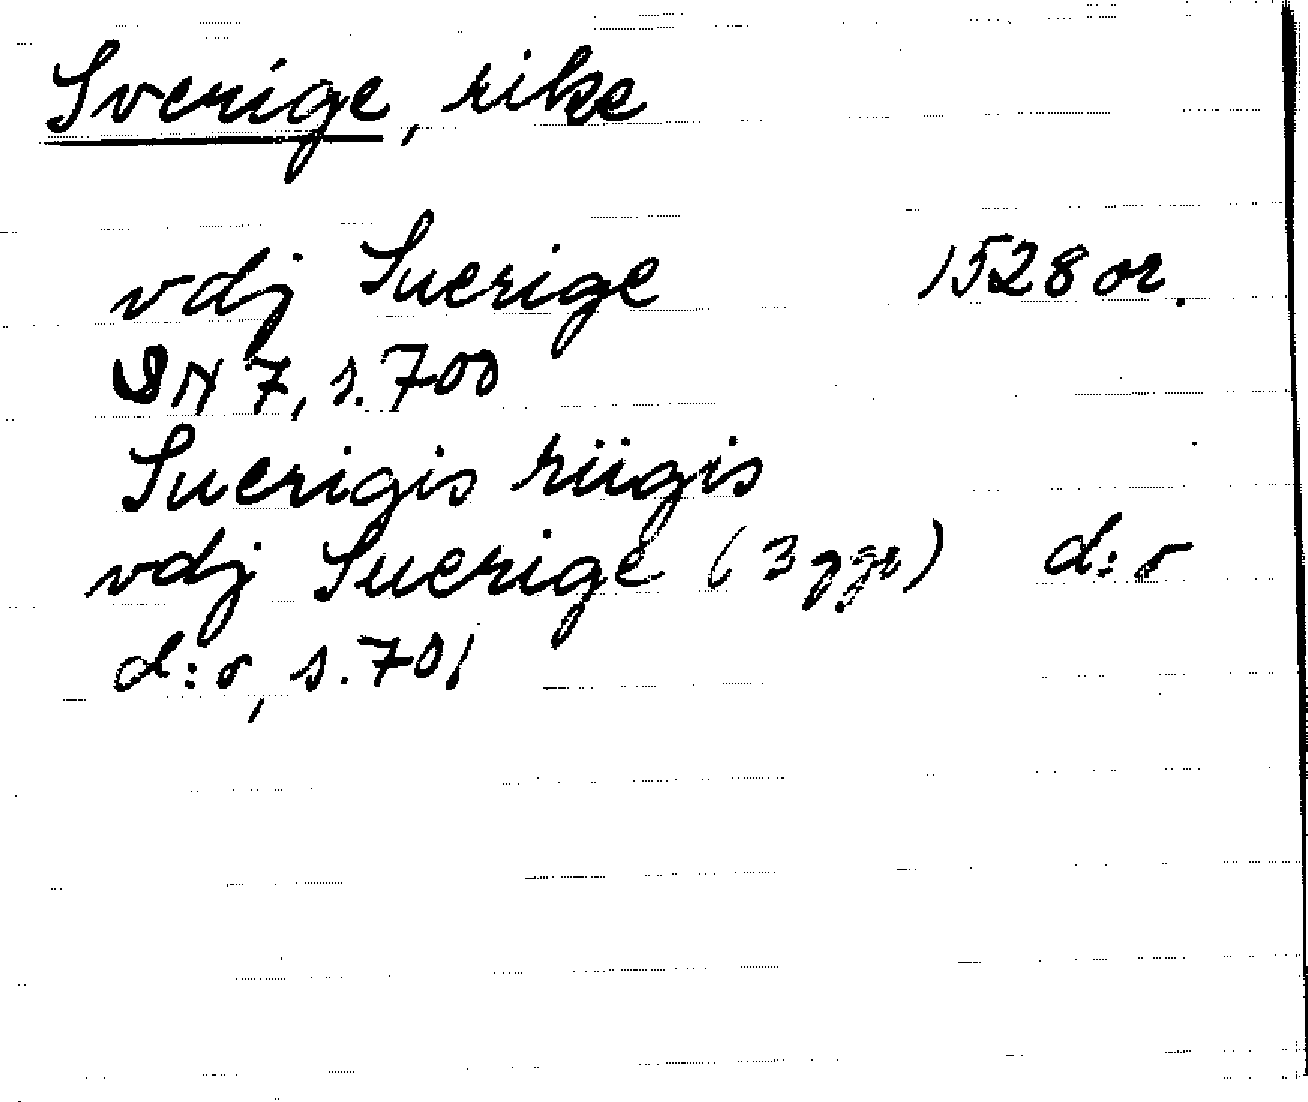 Sverige, rike
vdj Suerige 1528 or.
DN 7, s. 700
Suerigis riigis
vdj Suerige (3 ggr) d:o
d:o, s. 701